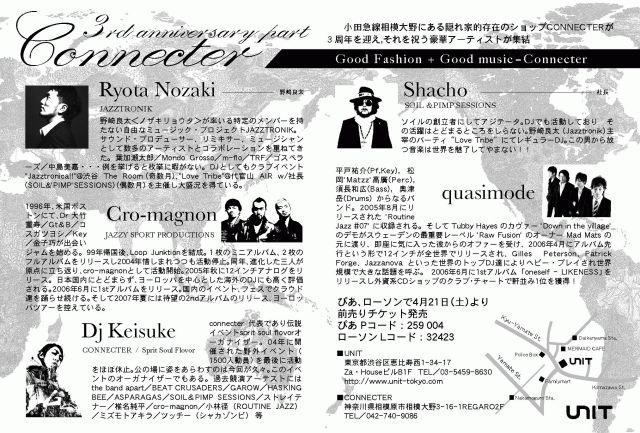 3rd anniversary part
Connecter
小田急線相模大野にある隠れ家的存在のショップCONNECTERが
3周年を迎え,それを祝う豪華アーティストが集結
Good Fashion + Good music = Connecter
Ryota Nozaki
野崎良太
JAZZTRONIK
野崎良太<ノザキリョウタ>が率いる特定のメンバーを持
たない自由なミュージック・プロジェクトJAZZTRONIK。
サウンド・プロデューサー、リミキサー、ミュージシャン
として数多のアーティストとコラボレーションを重ねてき
た。葉加瀬太郎/Mondo Grosso/m-flo/TRF/ゴスペラ
ーズ/中島美嘉・・・例を挙げると枚挙に暇がない。DJとしてもクラブイベント
"Jazztronica!!"@渋谷 The Room(奇数月)、"Love Tribe"@代官山 AIR w/社長
(SOIL&"PIMP"SESSIONS)(偶数月)を主催し大盛況を得ている。
Cro-magnon
JAZZY SPORT PRODUCTIONS
1996年、米国ボス
トンにて、Dr大竹
重寿/Gt&B/コ
スガツヨシ/Key
/金子巧が出会い
ジャムを始める。99年帰国後、Loop Junktionを結成。1枚のミニアルバム、2枚の
フルアルバムをリリースし2004年惜しまれつつも活動停止。同年、進化した三人が
原点に立ち返り、cro-magnonとして活動開始。2005年秋に12インチアナログをリ
リース。日本国内にとどまらず、ヨーロッパを中心とした海外のDJにも高く評価
される。2006年6月に1stアルバムをリリース。国内のイベント、フェスでクラウド
達を踊らせ続ける。そして2007年夏には待望の2ndアルバムのリリース、ヨーロッ
パツアーを控えている。
Dj Keisuke
CONNECTER / Sprit Soul Flovor
connecter 代表であり伝説
イベントsprit soul flovorオ
ーガナイザー。04年に開
催された野外イベント(
1500人動員)を最後に活動
をほぼ休止。公の場に姿をあらわすのは今回が久々。このイベ
ントのオーガナイザーでもある。過去競演アーティストには
the band apart/BEAT CRUSADERS/GAROW/HASKING
BEE/ASPARAGAS/SOIL&PIMP SESSIONS/ストレイテ
ナー/椎名純平/cro-magnon/小林径(ROUTINE JAZZ)
/ミズモトアキラ/ツッチー(シャカゾンビ) 等
Shacho
社長
SOIL &PIMP SESSIONS
ソイルの創立者にしてアジテータ。DJでも活動しており、そ
の活躍はとどまるところをしらない。野崎良太(Jazztronik)主
宰のパーティ "Love Tribe" にてレギュラーDJ。この男から放
つ音楽は世界を魅了してやまない!!!
quasimode
平戸祐介(Pf,Key)、 松
岡"matzz"高廣(Perc)、
須長和広(Bass)、 奥津
岳(Drums) からなるバ
ンド。2005年8月にリ
リースされた "Routine
Jazz #07" に収録される。そして Tubby Hayes のカヴァー "Down in the village"
のデモがスウェーデンの最重要レーベル 'Raw Fusion' のオーナー Mad Mats の
元に渡り、即座に気に入った彼からのオファーを受け、2006年4月にアルバム先
行という形で12インチが全世界でリリースされ、Gilles Peterson、Patrick
Forge、Jazzanova といった世界のトップDJ達によりヘビー・プレイされ世界
規模で大きな話題を呼ぶ。 2006年6月に1stアルバム「oneself - LIKENESS」を
リリースし外資系CDショップのクラブ・チャートで軒並み1位を獲得!
ぴあ、ローソンで4月21日(土)より
前売りチケット発売
ぴあ Pコード: 259 004
ローソン Lコード: 32423
■UNIT
東京都渋谷区恵比寿西1-34-17
Za・HouseビルB1F TEL/03-5459-8630
http://www.unit-tokyo.com
■CONNECTER
神奈川県相模原市相模大野3-16-1REGARO2F
TEL/042-740-9086
Kyu-Yamate St.
Daikanyama Sta.
MERMAID CAFE
Police Box
UNIT
Yamate St.
Familymart
Komazawa St.
Nakameguro Sta.
UNIT